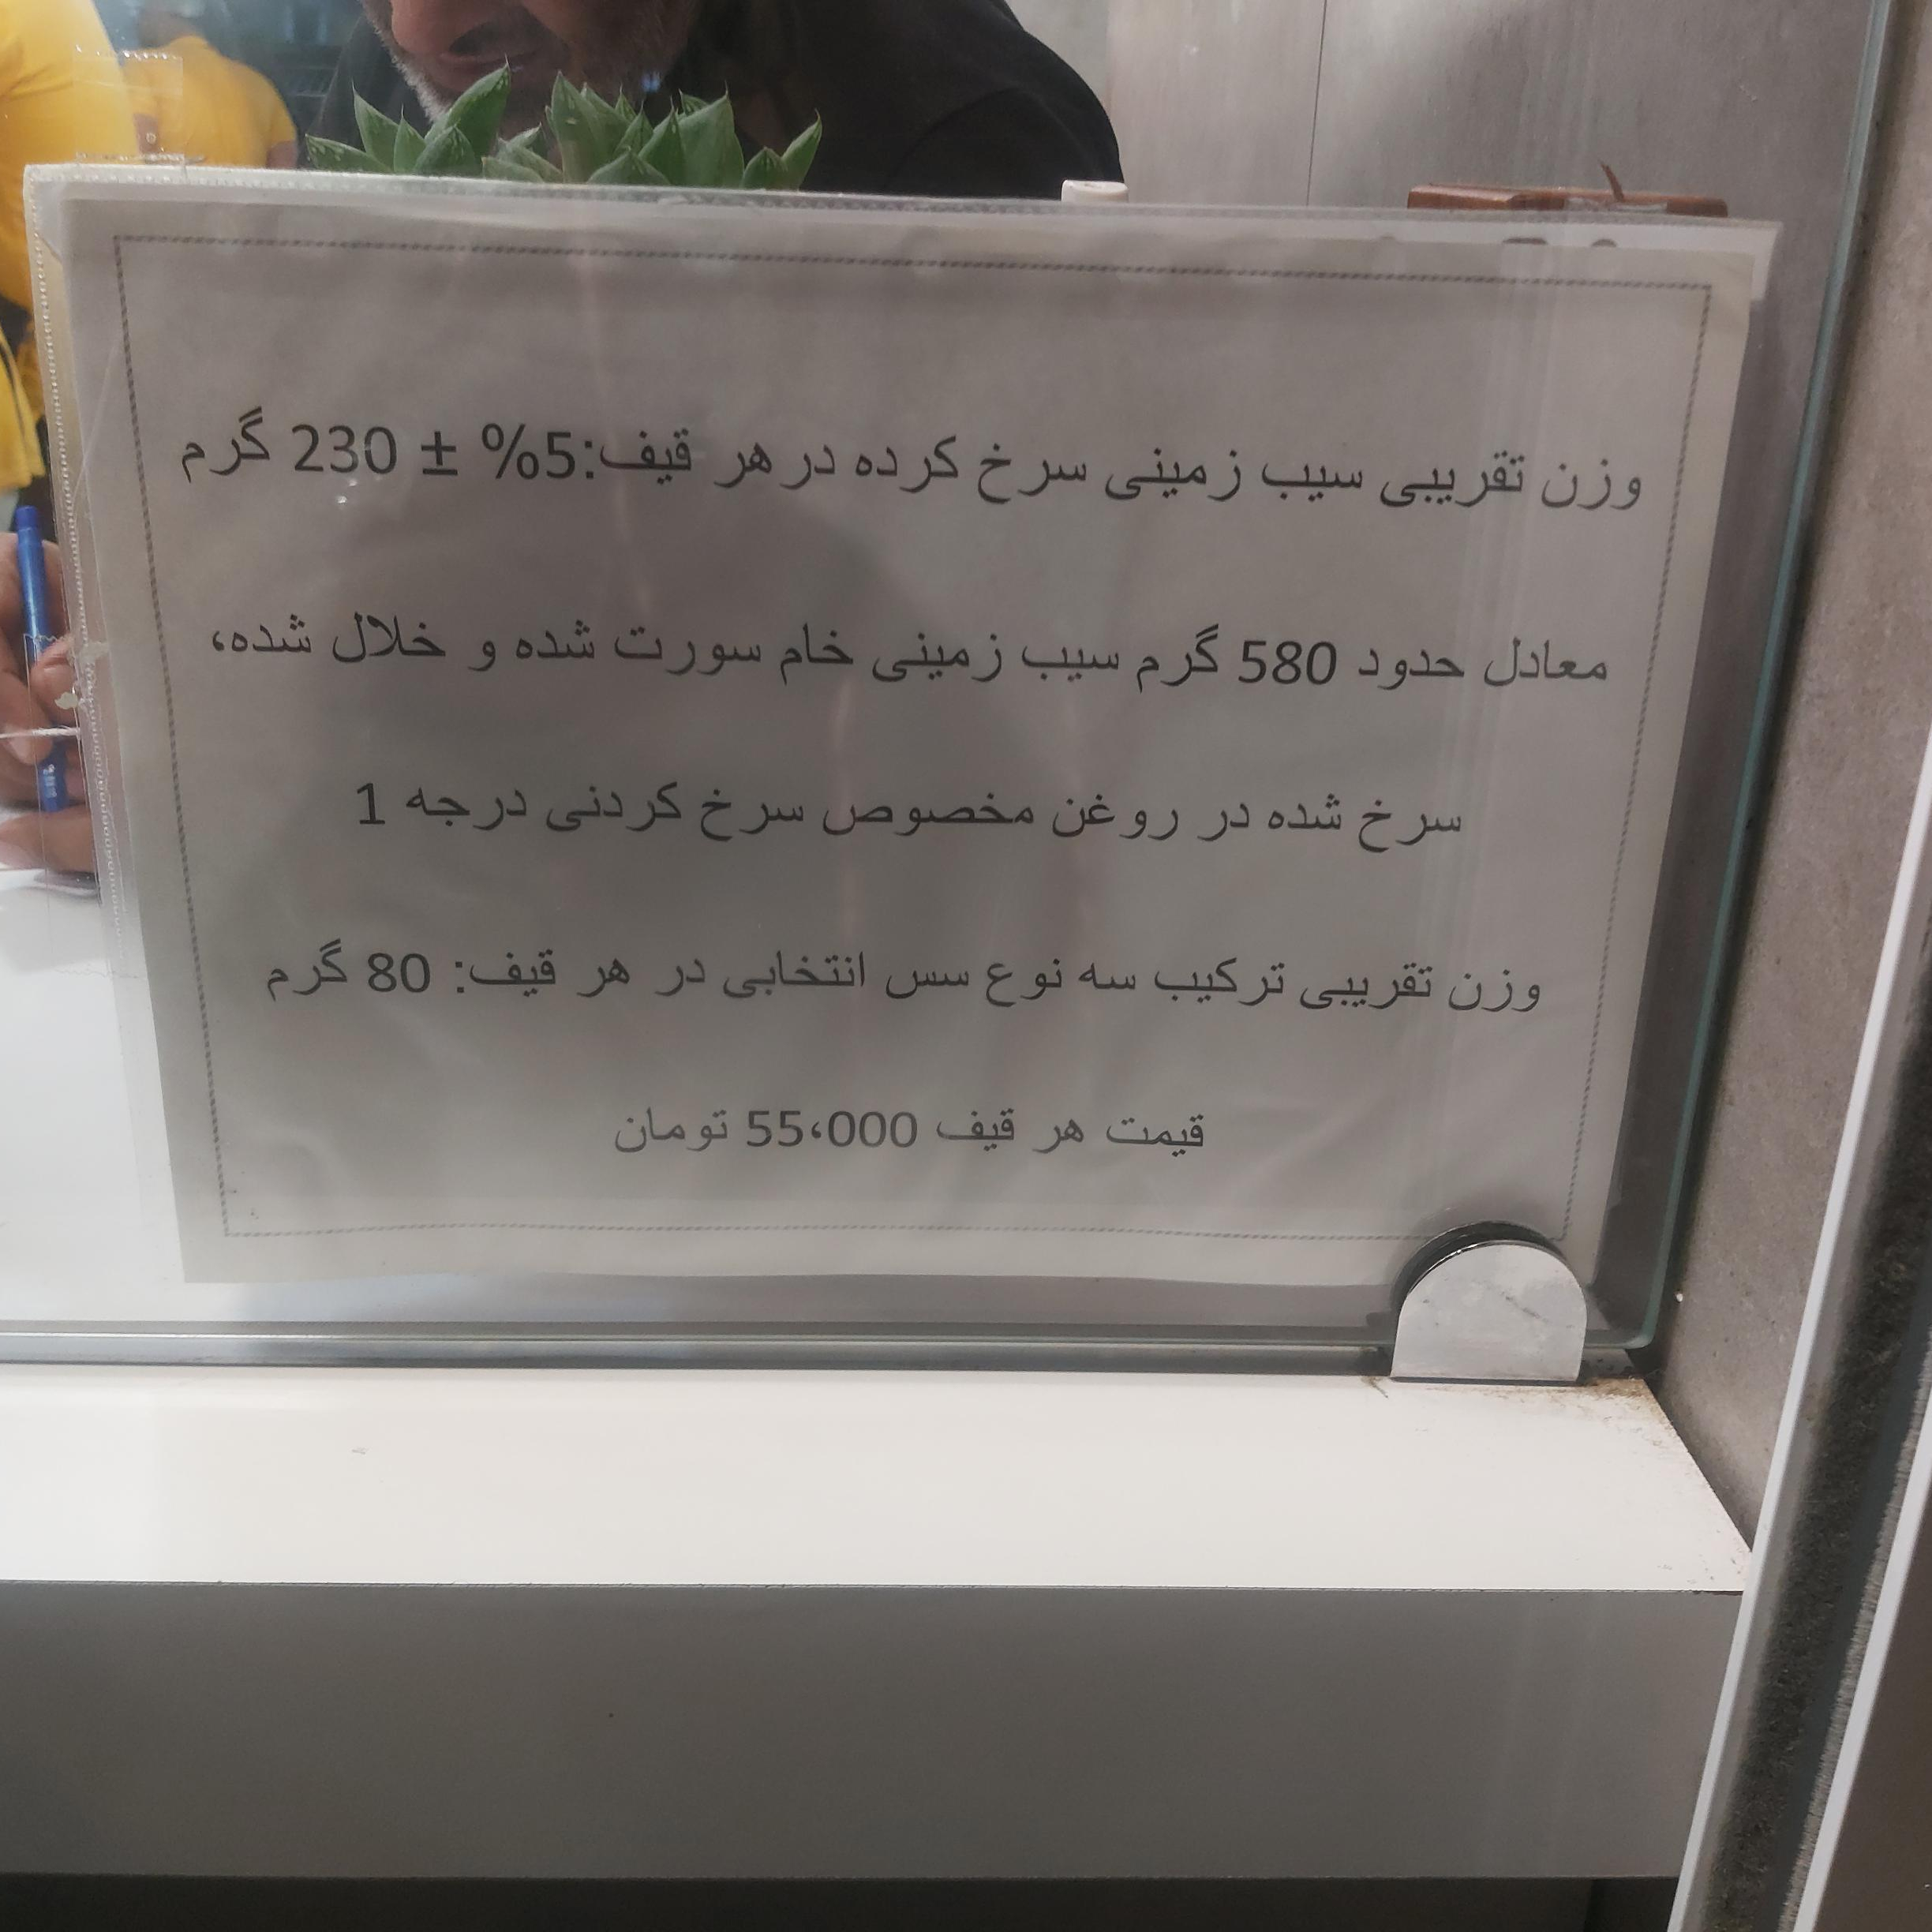 وزن تقریبی سیب زمینی سرخ کرده در هر قیف:5% ± 230 گرم
معادل حدود 580 گرم سیب زمینی خام سورت شده و خلال شده،
سرخ شده در روغن مخصوص سرخ کردنی درجه 1
وزن تقریبی ترکیب سه نوع سس انتخابی در هر قیف: 80 گرم
قیمت هر قیف 55،000 تومان